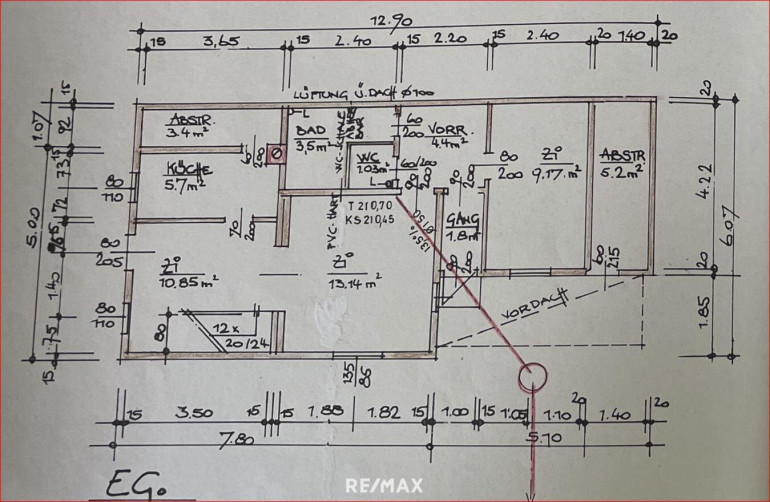 12.90
15 3,65 15 2.40 15 2.20 15 2.40 20 1.40 20
LÜFTUNG Ü.DACH Ø 100
ABSTR.
3.4 m²
BAD
3,5 m²
WC-SCHALE
60
200
VORR.
4.4 m²
WC
1.03 m²
60/200
80
200
ZI
9.17 m²
ABSTR
5.2 m²
KÜCHE
5.7 m²
60
200
90
200
90
200
GANG
1.8 m²
T 210,70
KS 210,45
PVC-HART
Ø 150
70
200
80
110
80
205
80
110
ZI
10,85 m²
ZI
13.14 m²
90
200
60
215
VORDACH
12 x
20/24
80
135
86
15
1.07
92
15
73
72
5.00
1.40
75
15
20
4.22
6.07
20
1.85
15 3.50 15 15 1.88 1.82 15 1.00 15 1.05 1.10 20 1.40 20
7.80 5.10
EG.
RE/MAX